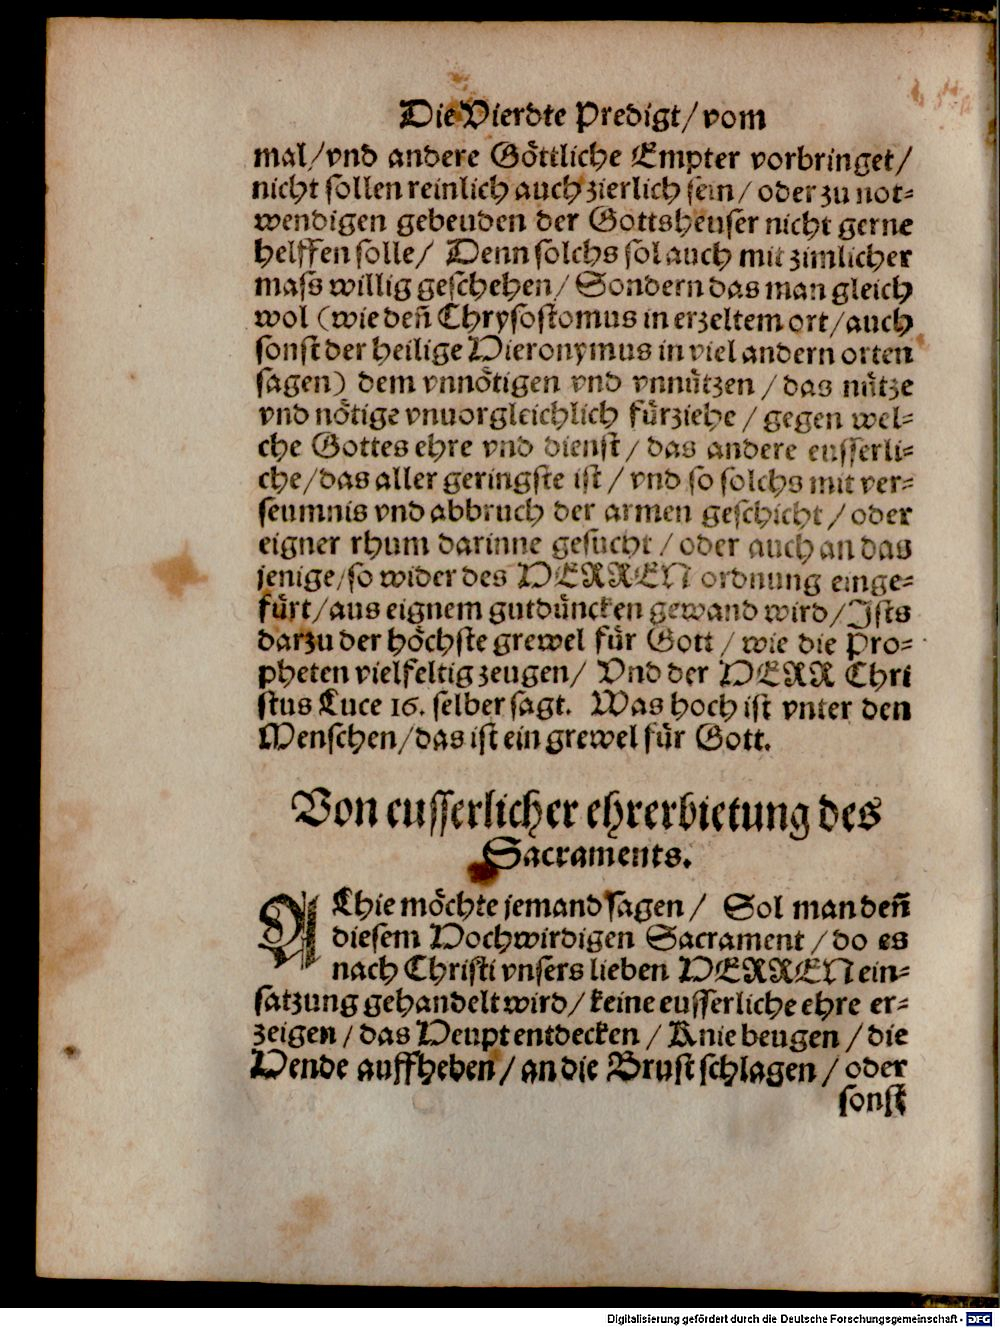 Die Vierdte Predigt/ vom
mal/ vnd andere Göttliche Empter vorbringet/
nicht sollen reinlich auch zierlich sein/ oder zu not⸗
wendigen gebeuden der Gottsheuser nicht gerne
helffen solle/ Denn solchs sol auch mit zimlicher
mass willig geschehen/ Sondern das man gleich
wol (wie deñ Chrysostomus in erzeltem ort/ auch
sonst der heilige Hieronymus in viel andern orten
sagen) dem vnnötigen vnd vnnützen/ das nütze
vnd nötige vnuorgleichlich fürziehe/ gegen wel⸗
che Gottes ehre vnd dienst/ das andere eusserli⸗
che/ das aller geringste ist/ vnd so solchs mit ver⸗
seumnis vnd abbruch der armen geschicht/ oder
eigner rhum darinne gesucht/ oder auch an das
jenige/ so wider des HERREN ordnung einge⸗
fürt/ aus eignem gutdüncken gewand wird/ Ists
darzu der höchste grewel für Gott/ wie die Pro⸗
pheten vielfeltig zeugen/ Vnd der HERR Chri
stus Luce 16. selber sagt. Was hoch ist vnter den
Menschen/ das ist ein grewel für Gott.
Von eusserlicher ehrerbietung des
Sacraments.
ALhie möchte jemand sagen/ Sol man deñ
diesem Hochwirdigen Sacrament/ do es
nach Christi vnsers lieben HERREN ein⸗
satzung gehandelt wird/ keine eusserliche ehre er⸗
zeigen/ das Heupt entdecken/ Knie beugen/ die
Hende auffheben/ an die Brust schlagen/ oder
sonst
Digitalisierung gefördert durch die Deutsche Forschungsgemeinschaft - DFG